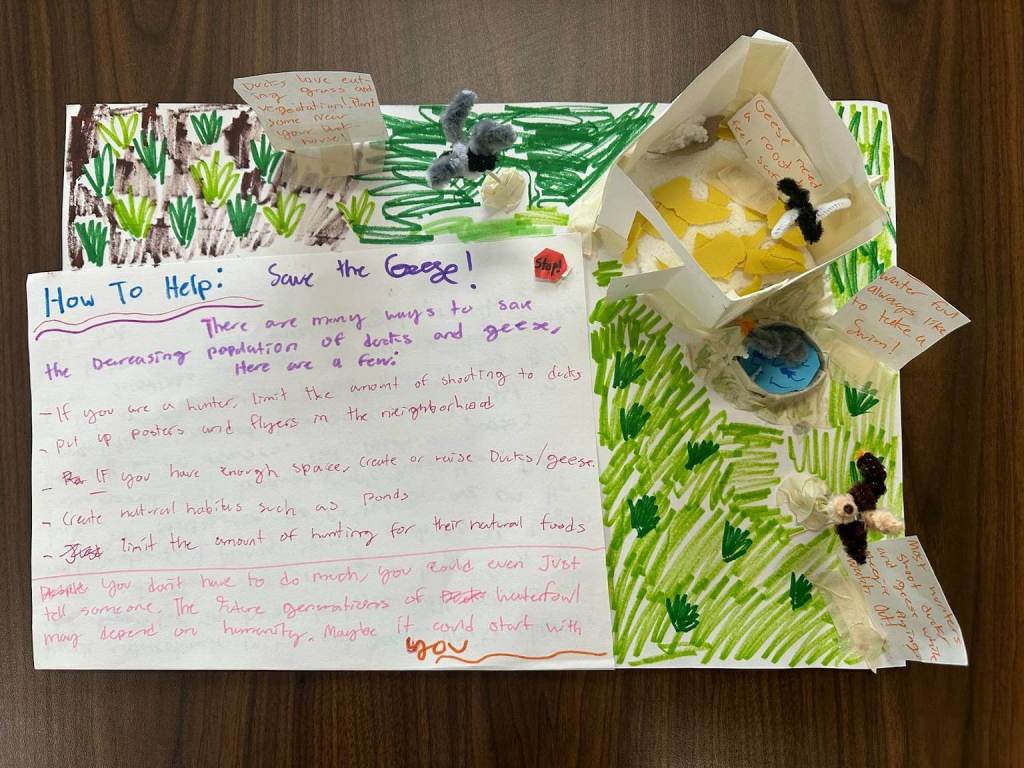 Ducks love eat-
ing grass and
vegetation! Plant
some near
your duck
house!
Geese need
a roost
feel safe
How To Help: Save the Geese!
Stop!
There are many ways to save
the Decreasing population of ducks and geese,
Here are a few:
- If you are a hunter, limit the amount of shooting to ducks
- Put up posters and flyers in the nieghborhood
- IF you have enough space, create or raise Ducks/geese.
- Create natural habitats such as ponds
- limit the amount of hunting for their natural foods
You don't have to do much, you could even Just
tell someone. The future generations of waterfowl
may depend on humanity. Maybe it could start with
you
Water fowl
always like
to take a
Swim!
Most hunters
shoot ducks
and geese while
they're flying.
Watch Out!